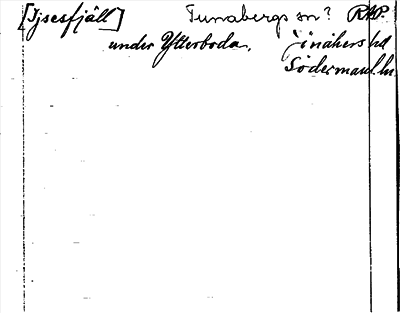 [Ijsesfjäll] Tunabergs sn? RAP.
under Ytterboda, Jönåkers hd
Södermanl. ln.